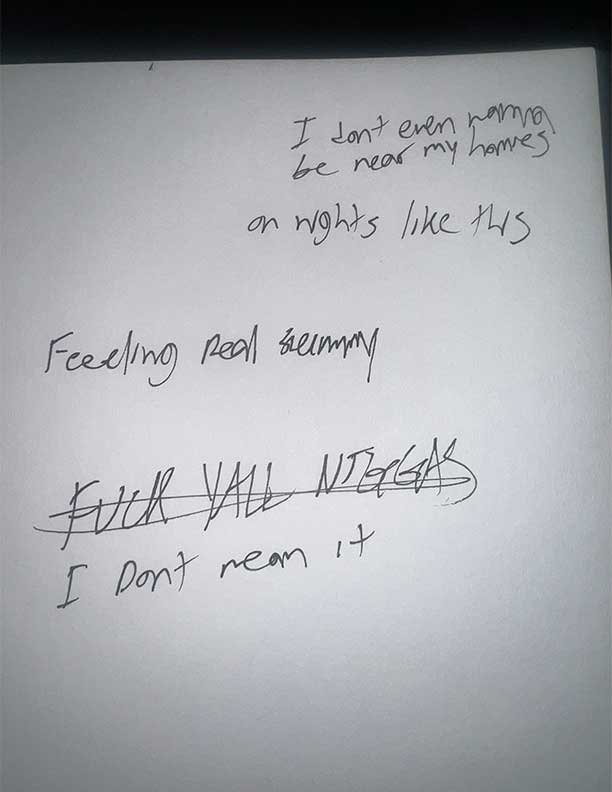 I dont even wanna
be near my homies
on nights like this
Feeling real scummy
FUCK YALL NIGGAS
I Dont mean it